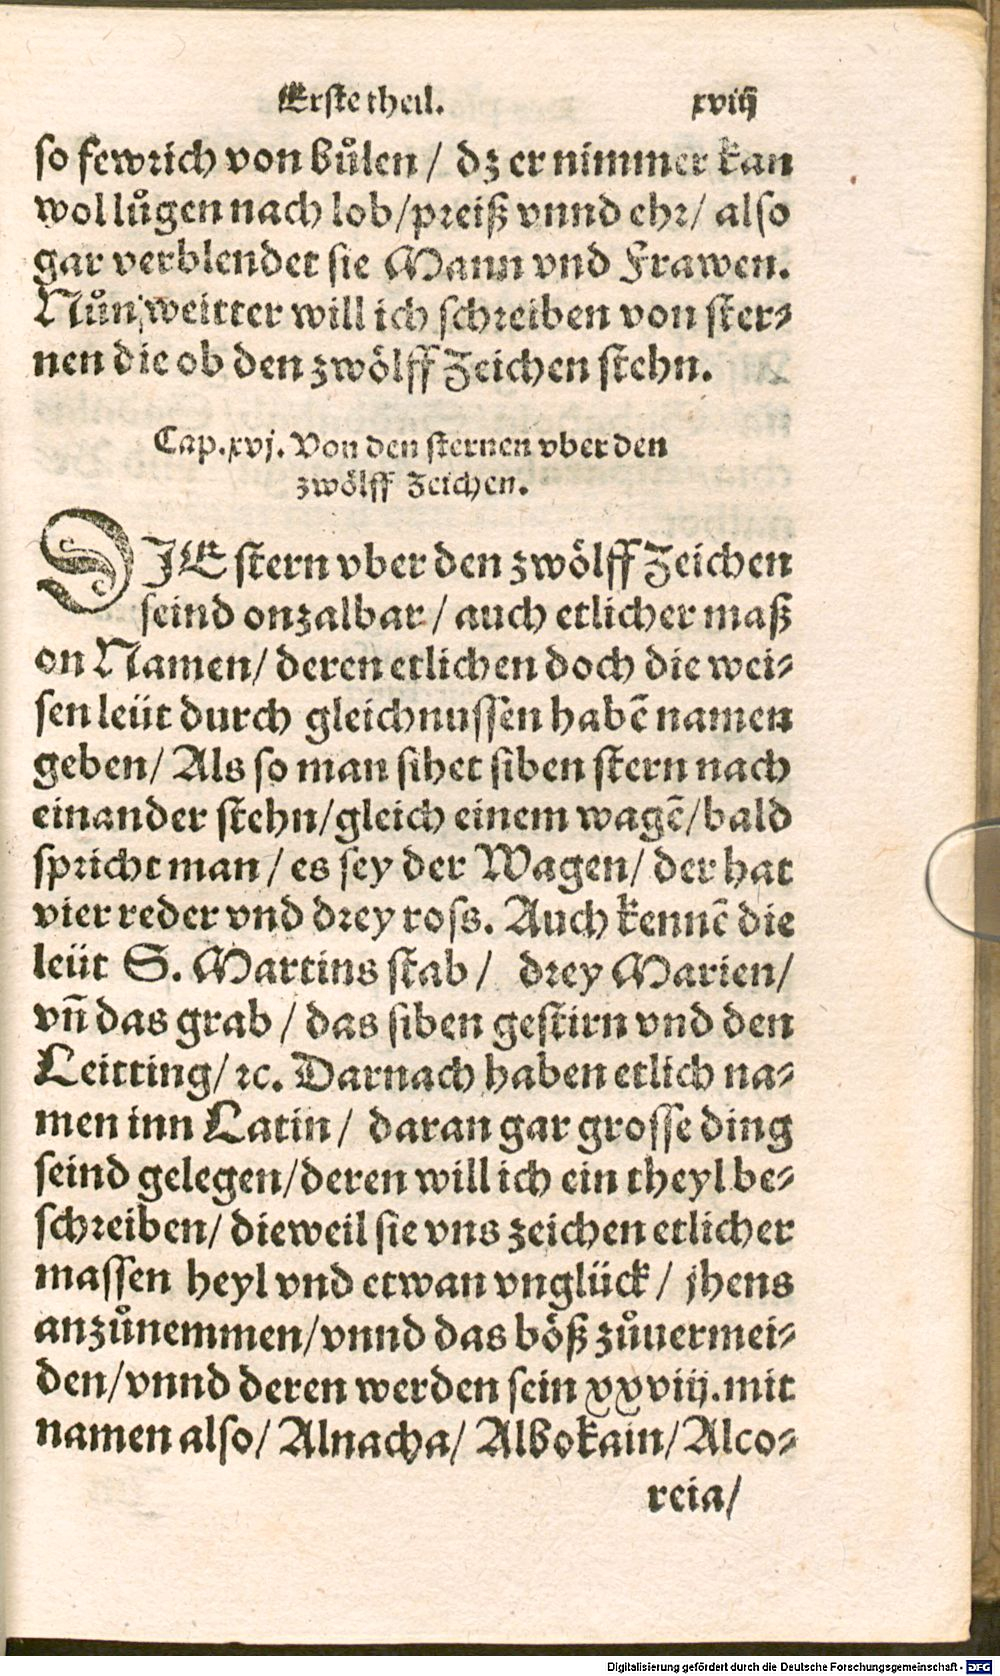 Erste theil. xviij
so fewrich von bůlen / dz er nimmer kan
wol lůgen nach lob/preiß vnnd ehr/ also
gar verblendet sie Mann vnd Frawen.
Nůn weitter will ich schreiben von ster-
nen die ob den zwölff Zeichen stehn.
Cap.xvj. Von den sternen vber den
zwölff Zeichen.
DIE stern vber den zwölff Zeichen
seind onzalbar / auch etlicher maß
on Namen/ deren etlichen doch die wei-
sen leüt durch gleichnussen habẽ namen
geben/ Als so man sihet siben stern nach
einander stehn/gleich einem wagẽ/bald
spricht man / es sey der Wagen/ der hat
vier reder vnd drey ross. Auch kennẽ die
leüt S. Martins stab / drey Marien/
vñ das grab / das siben gestirn vnd den
Leitting/ ꝛc. Darnach haben etlich na-
men inn Latin / daran gar grosse ding
seind gelegen/deren will ich ein theyl be-
schreiben/ dieweil sie vns zeichen etlicher
massen heyl vnd etwan vnglück / jhens
anzůnemmen/vnnd das böß zůuermei-
den/vnnd deren werden sein xxviij.mit
namen also/ Alnacha/ Albokain/ Alco-
reia/
Digitalisierung gefördert durch die Deutsche Forschungsgemeinschaft - DFG